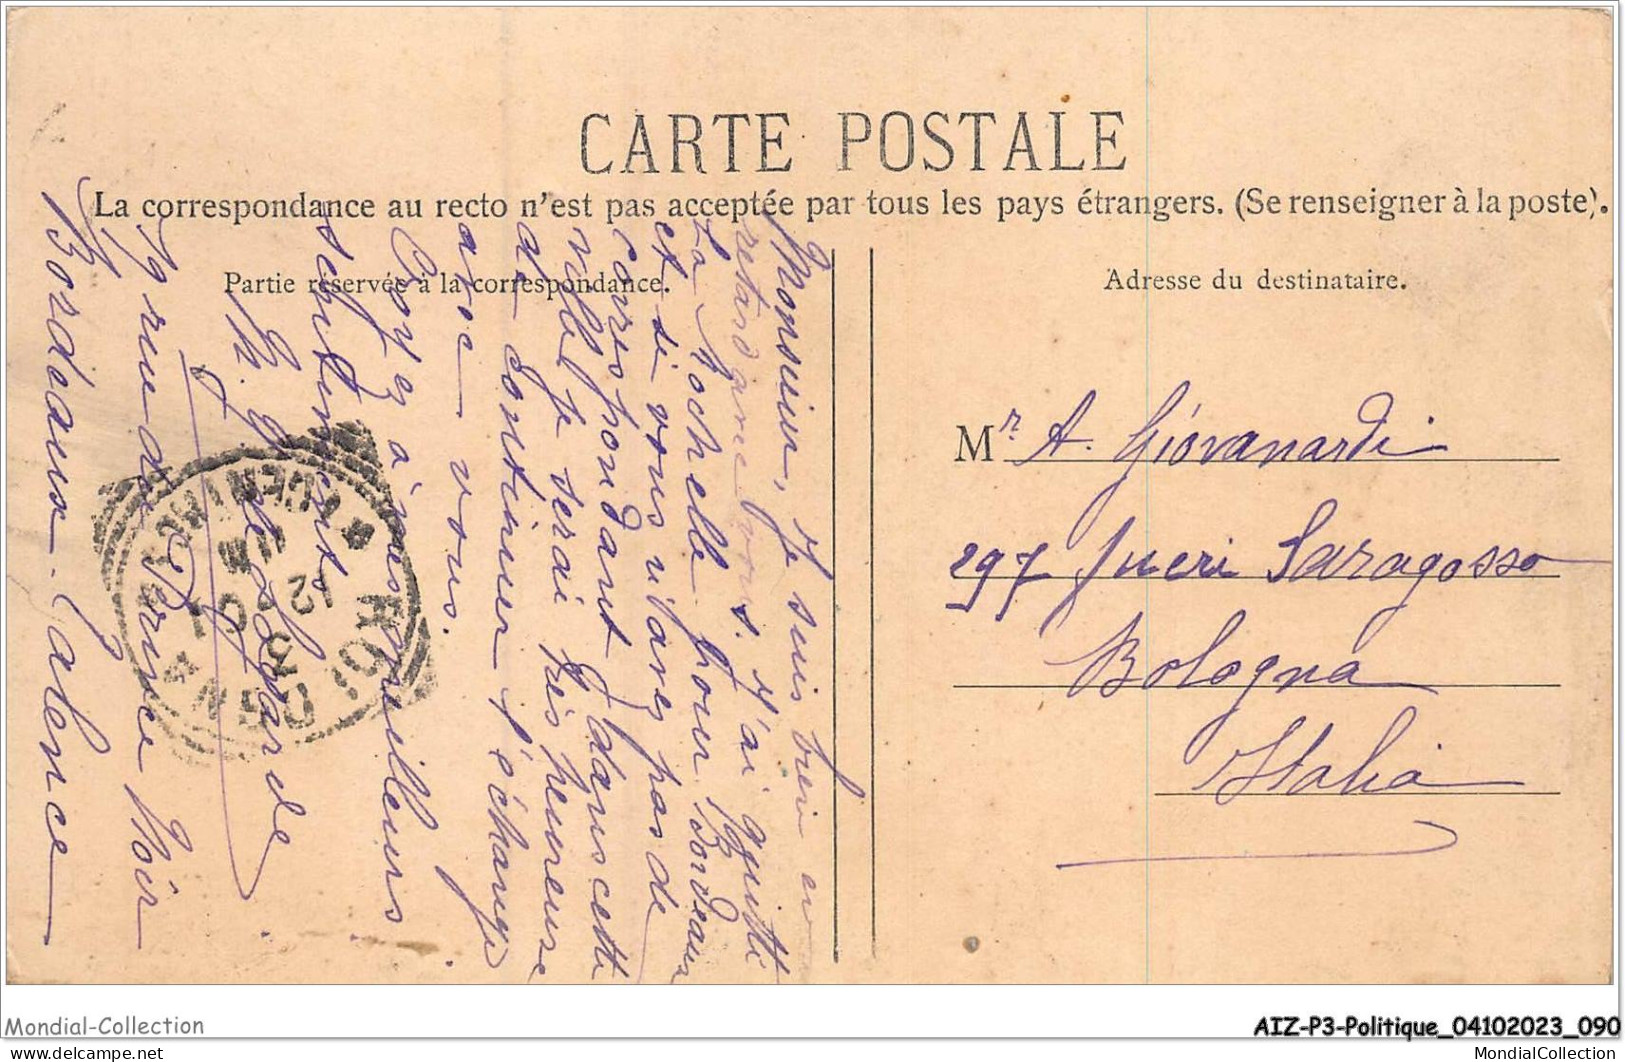 CARTE POSTALE
La correspondance au recto n'est pas acceptée par tous les pays étrangers. (Se renseigner à la poste).
Partie réservée à la correspondance.
Adresse du destinataire.
Monsieur, Je suis bien en
retard avec vous. J'ai quitté
La Rochelle pour Bordeaux
et si vous n'avez pas de
correspondant dans cette
ville je serai très heureuse
de continuer l'échange
avec vous.
Croyez à mes meilleurs
sentiments
Bordeaux-Talence
Mr. A. Giovanardi
297 fuori Saragossa
Bologna
Italia
BOLOGNA
12
Mondial-Collection
AIZ-P3-Politique_04102023_090
delcampe.net
MondialCollection